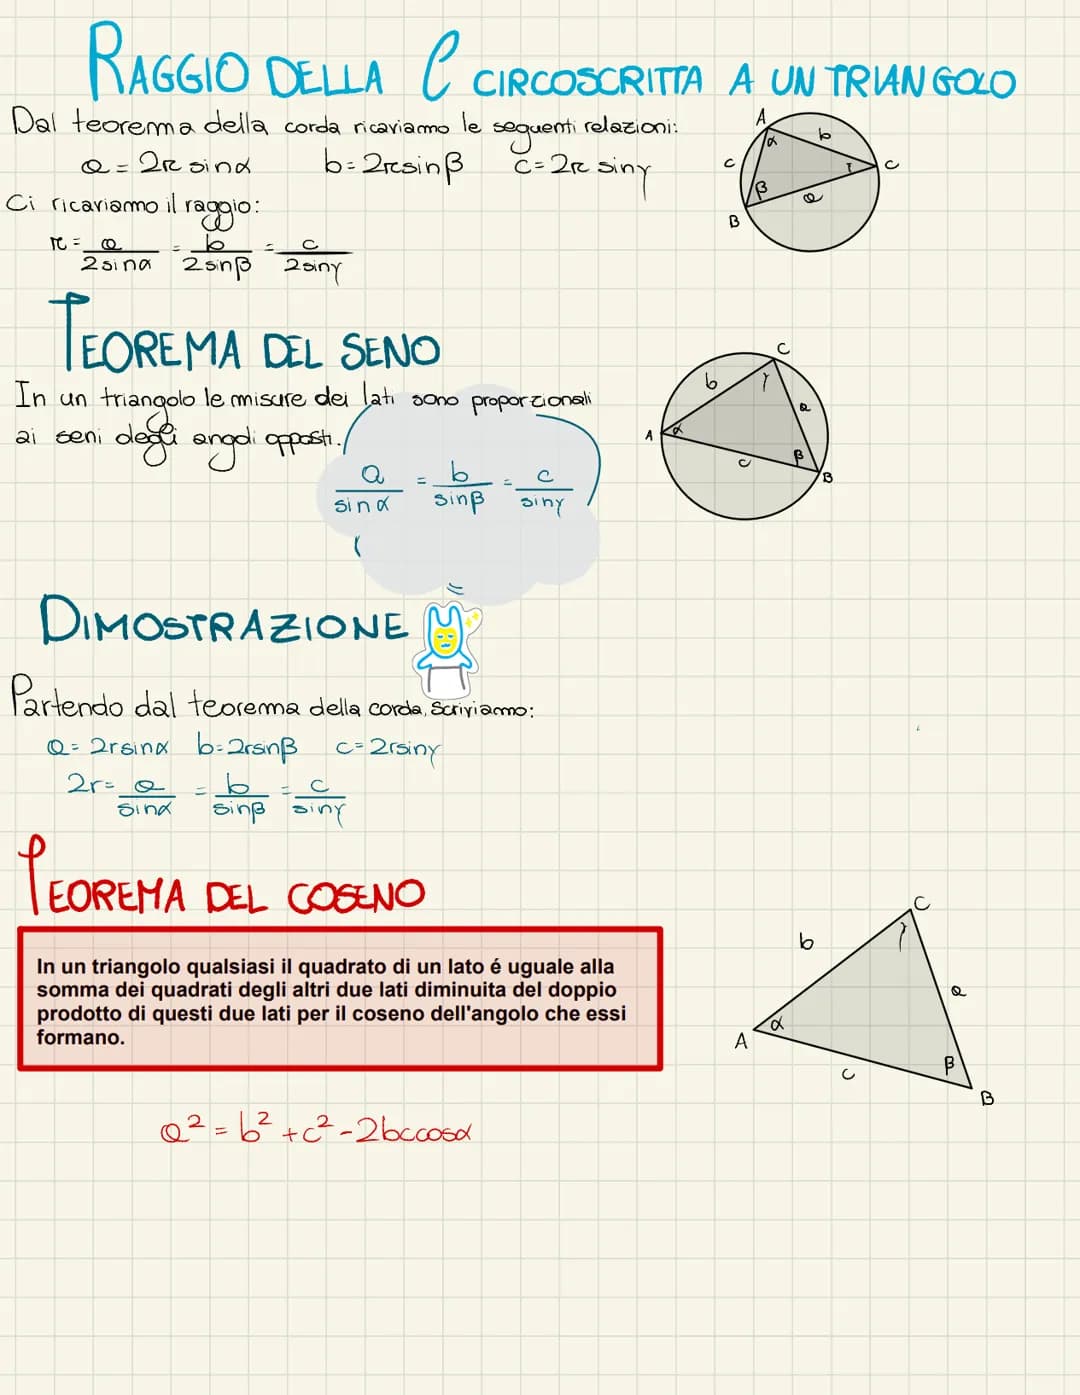 RAGGIO DELLA C CIRCOSCRITTA A UN TRIANGOLO
Dal teorema della corda ricaviamo le seguenti relazioni:
a = 2r sinα b = 2r sinβ c = 2r sinγ
Ci ricaviamo il raggio:
r = a/2sinα = b/2sinβ = c/2sinγ
A
α
b
c
γ
C
β
a
B
TEOREMA DEL SENO
In un triangolo le misure dei lati sono proporzionali
ai seni degli angoli opposti.
a/sinα = b/sinβ = c/sinγ
C
b
γ
a
A
α
c
β
B
DIMOSTRAZIONE
Partendo dal teorema della corda, scriviamo:
a = 2rsinα b = 2rsinβ c = 2rsinγ
2r = a/sinα = b/sinβ = c/sinγ
TEOREMA DEL COSENO
In un triangolo qualsiasi il quadrato di un lato é uguale alla
somma dei quadrati degli altri due lati diminuita del doppio
prodotto di questi due lati per il coseno dell'angolo che essi
formano.
C
b
γ
a
A
α
c
β
B
a² = b² + c² - 2bccosα